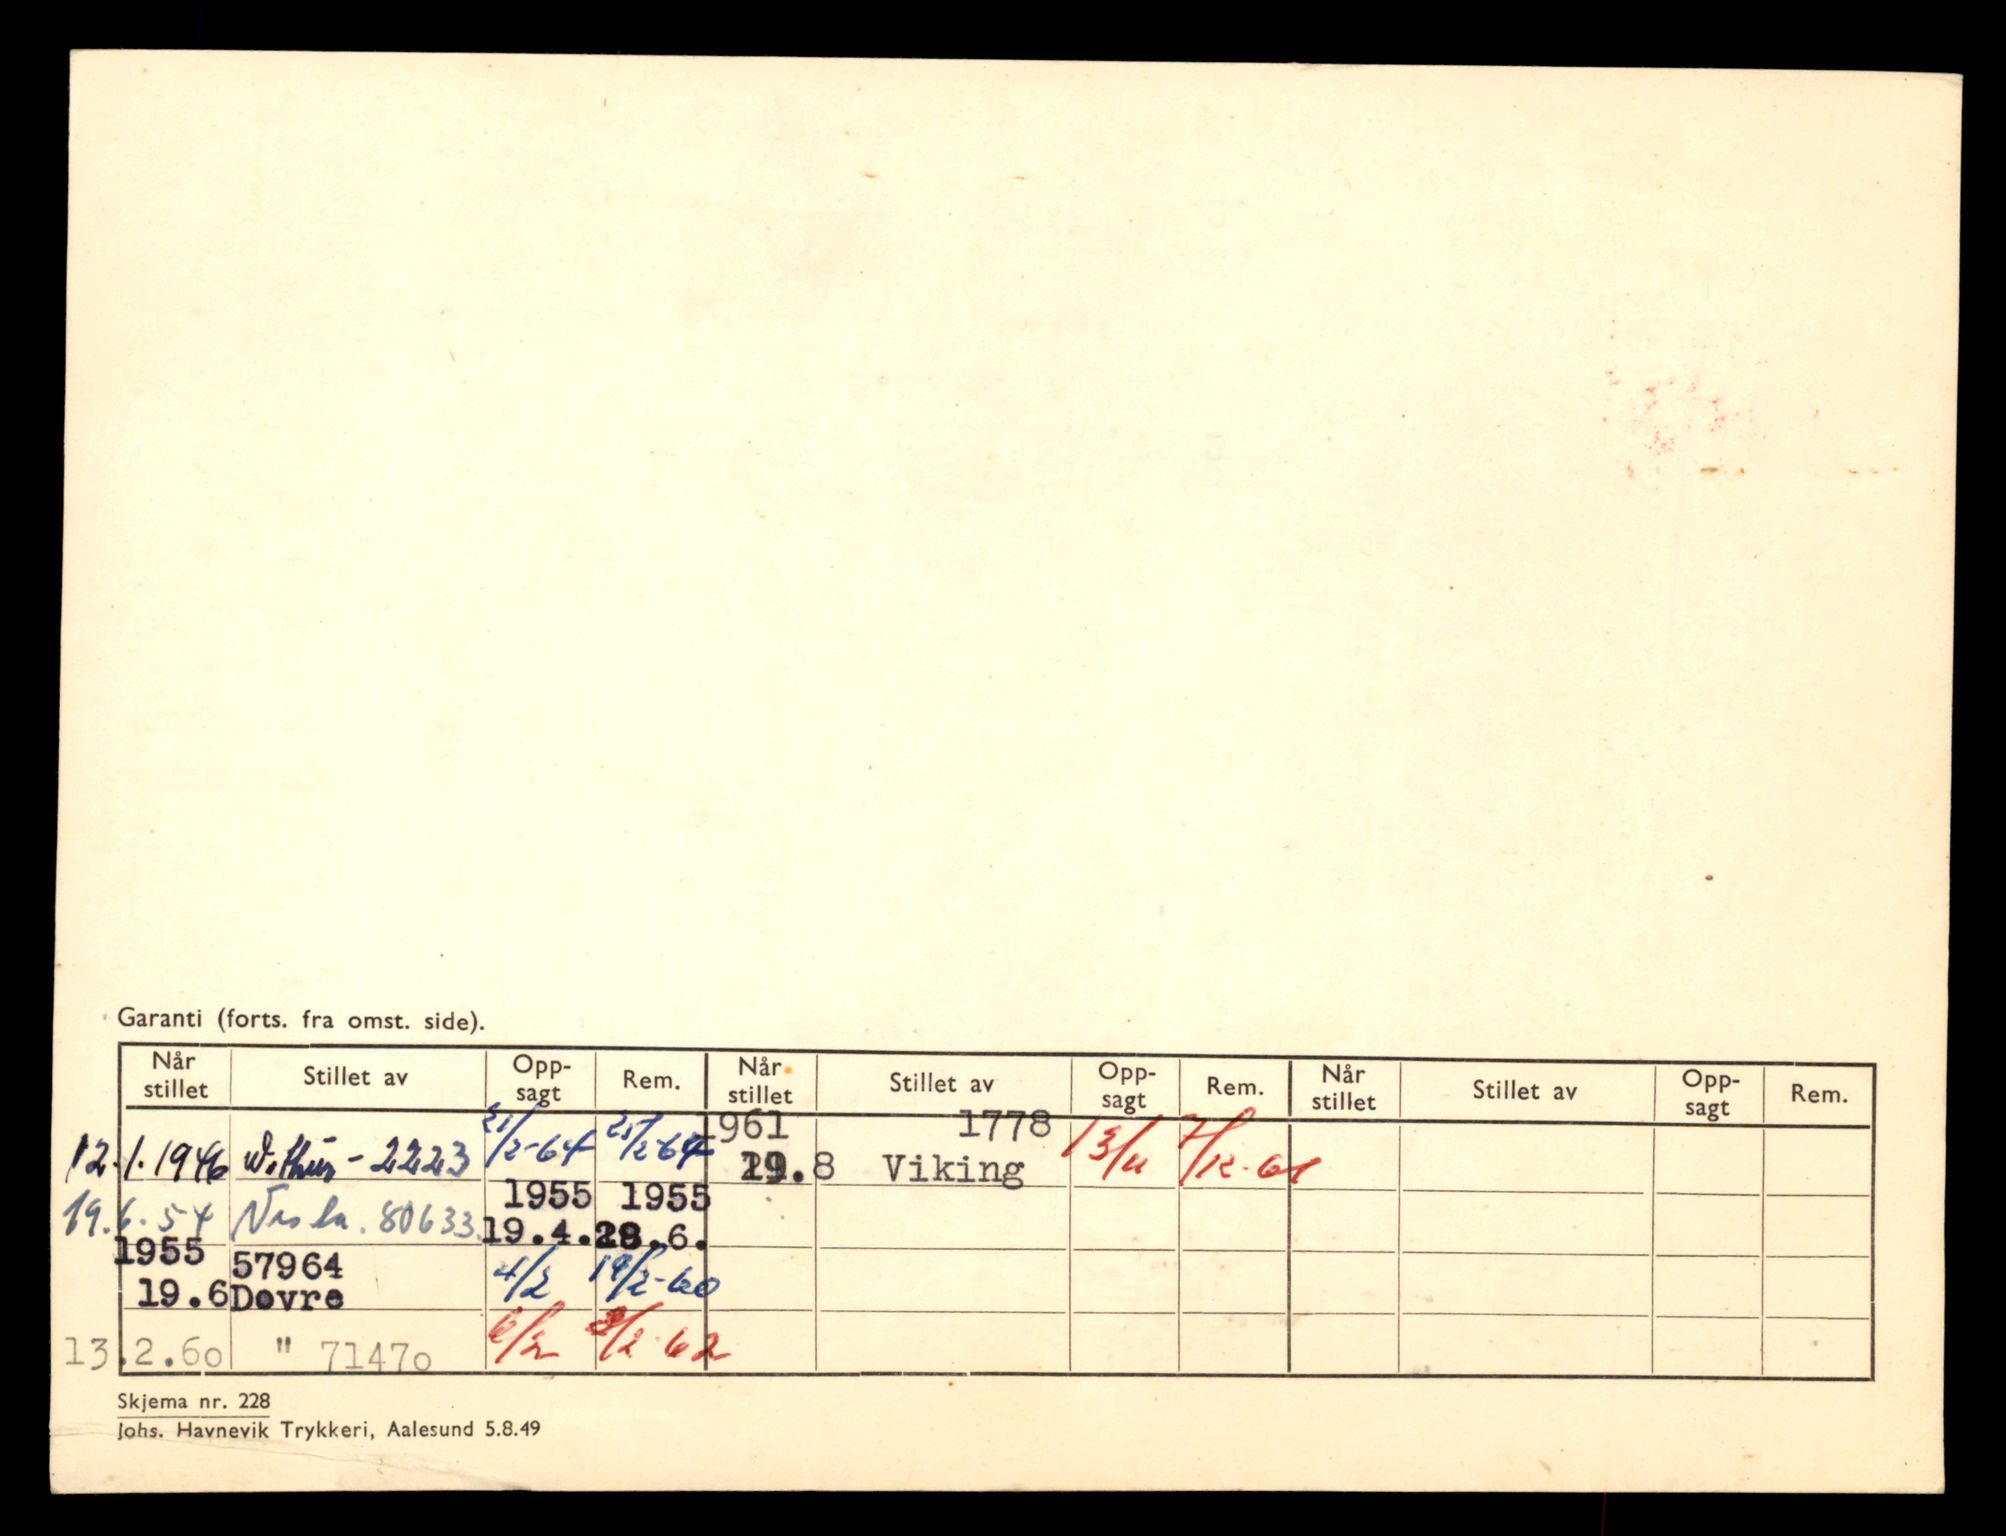 Garanti (forts. fra omst. side).
Når stillet Stillet av Opp-sagt Rem. Når stillet Stillet av Opp-sagt Rem. Når stillet Stillet av Opp-sagt Rem.
12.1.1946 - 2223 21/2-64 25/2-64 1961 19.8 1778 Viking 13/11 7/12-61
19.6.54 80633. 1955 19.4. 1955 28.6.
1955 19.6 57964 Dovre 4/2 19/2-60
13.2.60 " 71470 6/2 8/2-62
Skjema nr. 228
Johs. Havnevik Trykkeri, Aalesund 5.8.49